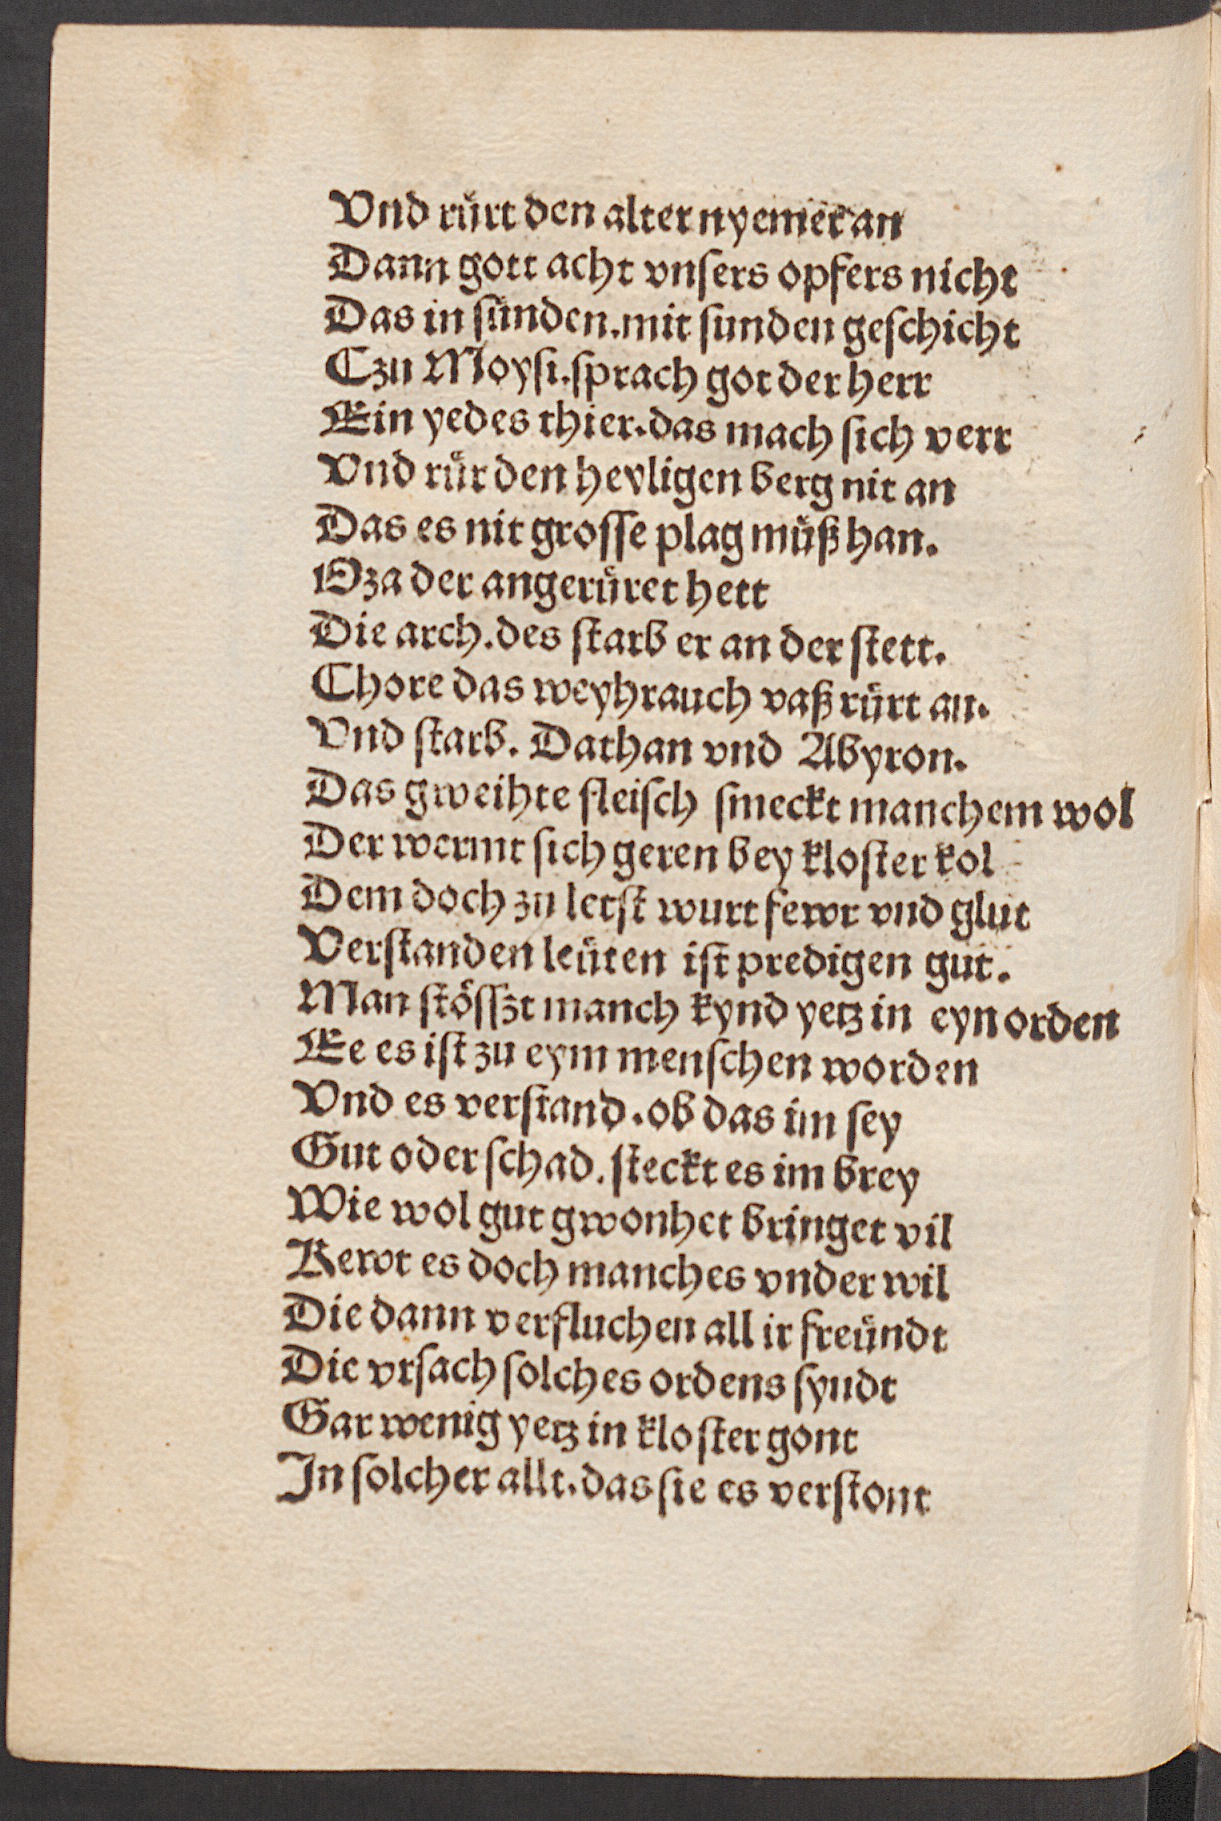 Vnd rürt den alter nyemer an
Dann gott acht vnsers opfers nicht
Das in sünden.mit sunden geschicht
Czu Moysi.sprach got der herr
Ein yedes thier.das mach sich verr
Vnd rür den heyligen berg nit an
Das es nit grosse plag müß han.
Oza der angerüret hett
Die arch.des starb er an der stett.
Chore das weyhrauch vaß rürt an.
Vnd starb. Dathan vnd Abyron.
Das gweihte fleisch smeckt manchem wol
Der wermt sich geren bey kloster kol
Dem doch zu letst wurt fewr vnd glut
Verstanden leüten ist predigen gut.
Man stösszt manch kynd yetz in eyn orden
Ee es ist zu eym menschen worden
Vnd es verstand.ob das im sey
Gut oder schad.steckt es im brey
Wie wol gut gwonhet bringet vil
Rewt es doch manches vnder wil
Die dann verfluchen all ir freündt
Die vrsach solches ordens syndt
Gar wenig yetz in kloster gont
In solcher allt.das sie es verstont